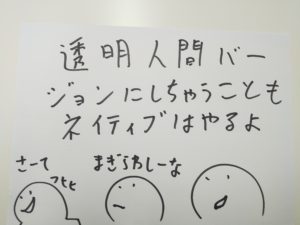 透明人間バー
ジョンにしちゃうことも
ネイティブはやるよ
さーて
つヒヒ
まぎらわしーな